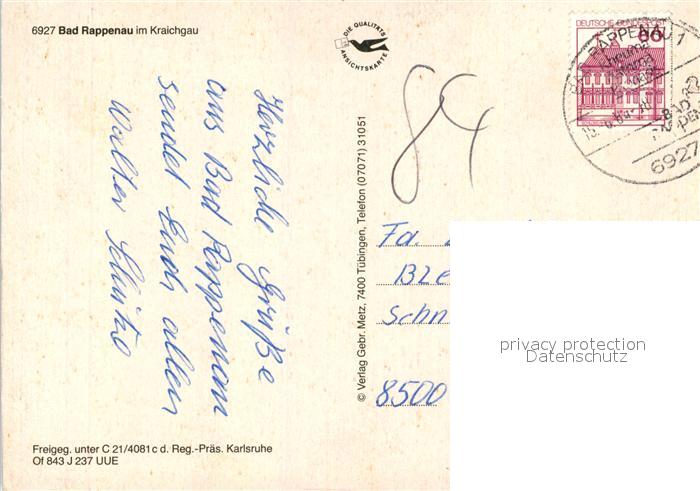 6927 Bad Rappenau im Kraichgau
DIE QUALITÄTS
ANSICHTSKARTE
DEUTSCHE BUNDESPOST
60
RAPPENAU 1
6927
84
Herzliche Grüße
aus Bad Rappenau
sendet Euch allen
Walter
© Verlag Gebr. Metz, 7400 Tübingen, Telefon (07071) 31051
Fa.
Schn
8500
privacy protection
Datenschutz
Freigeg. unter C 21/4081 c d. Reg.-Präs. Karlsruhe
Of 843 J 237 UUE